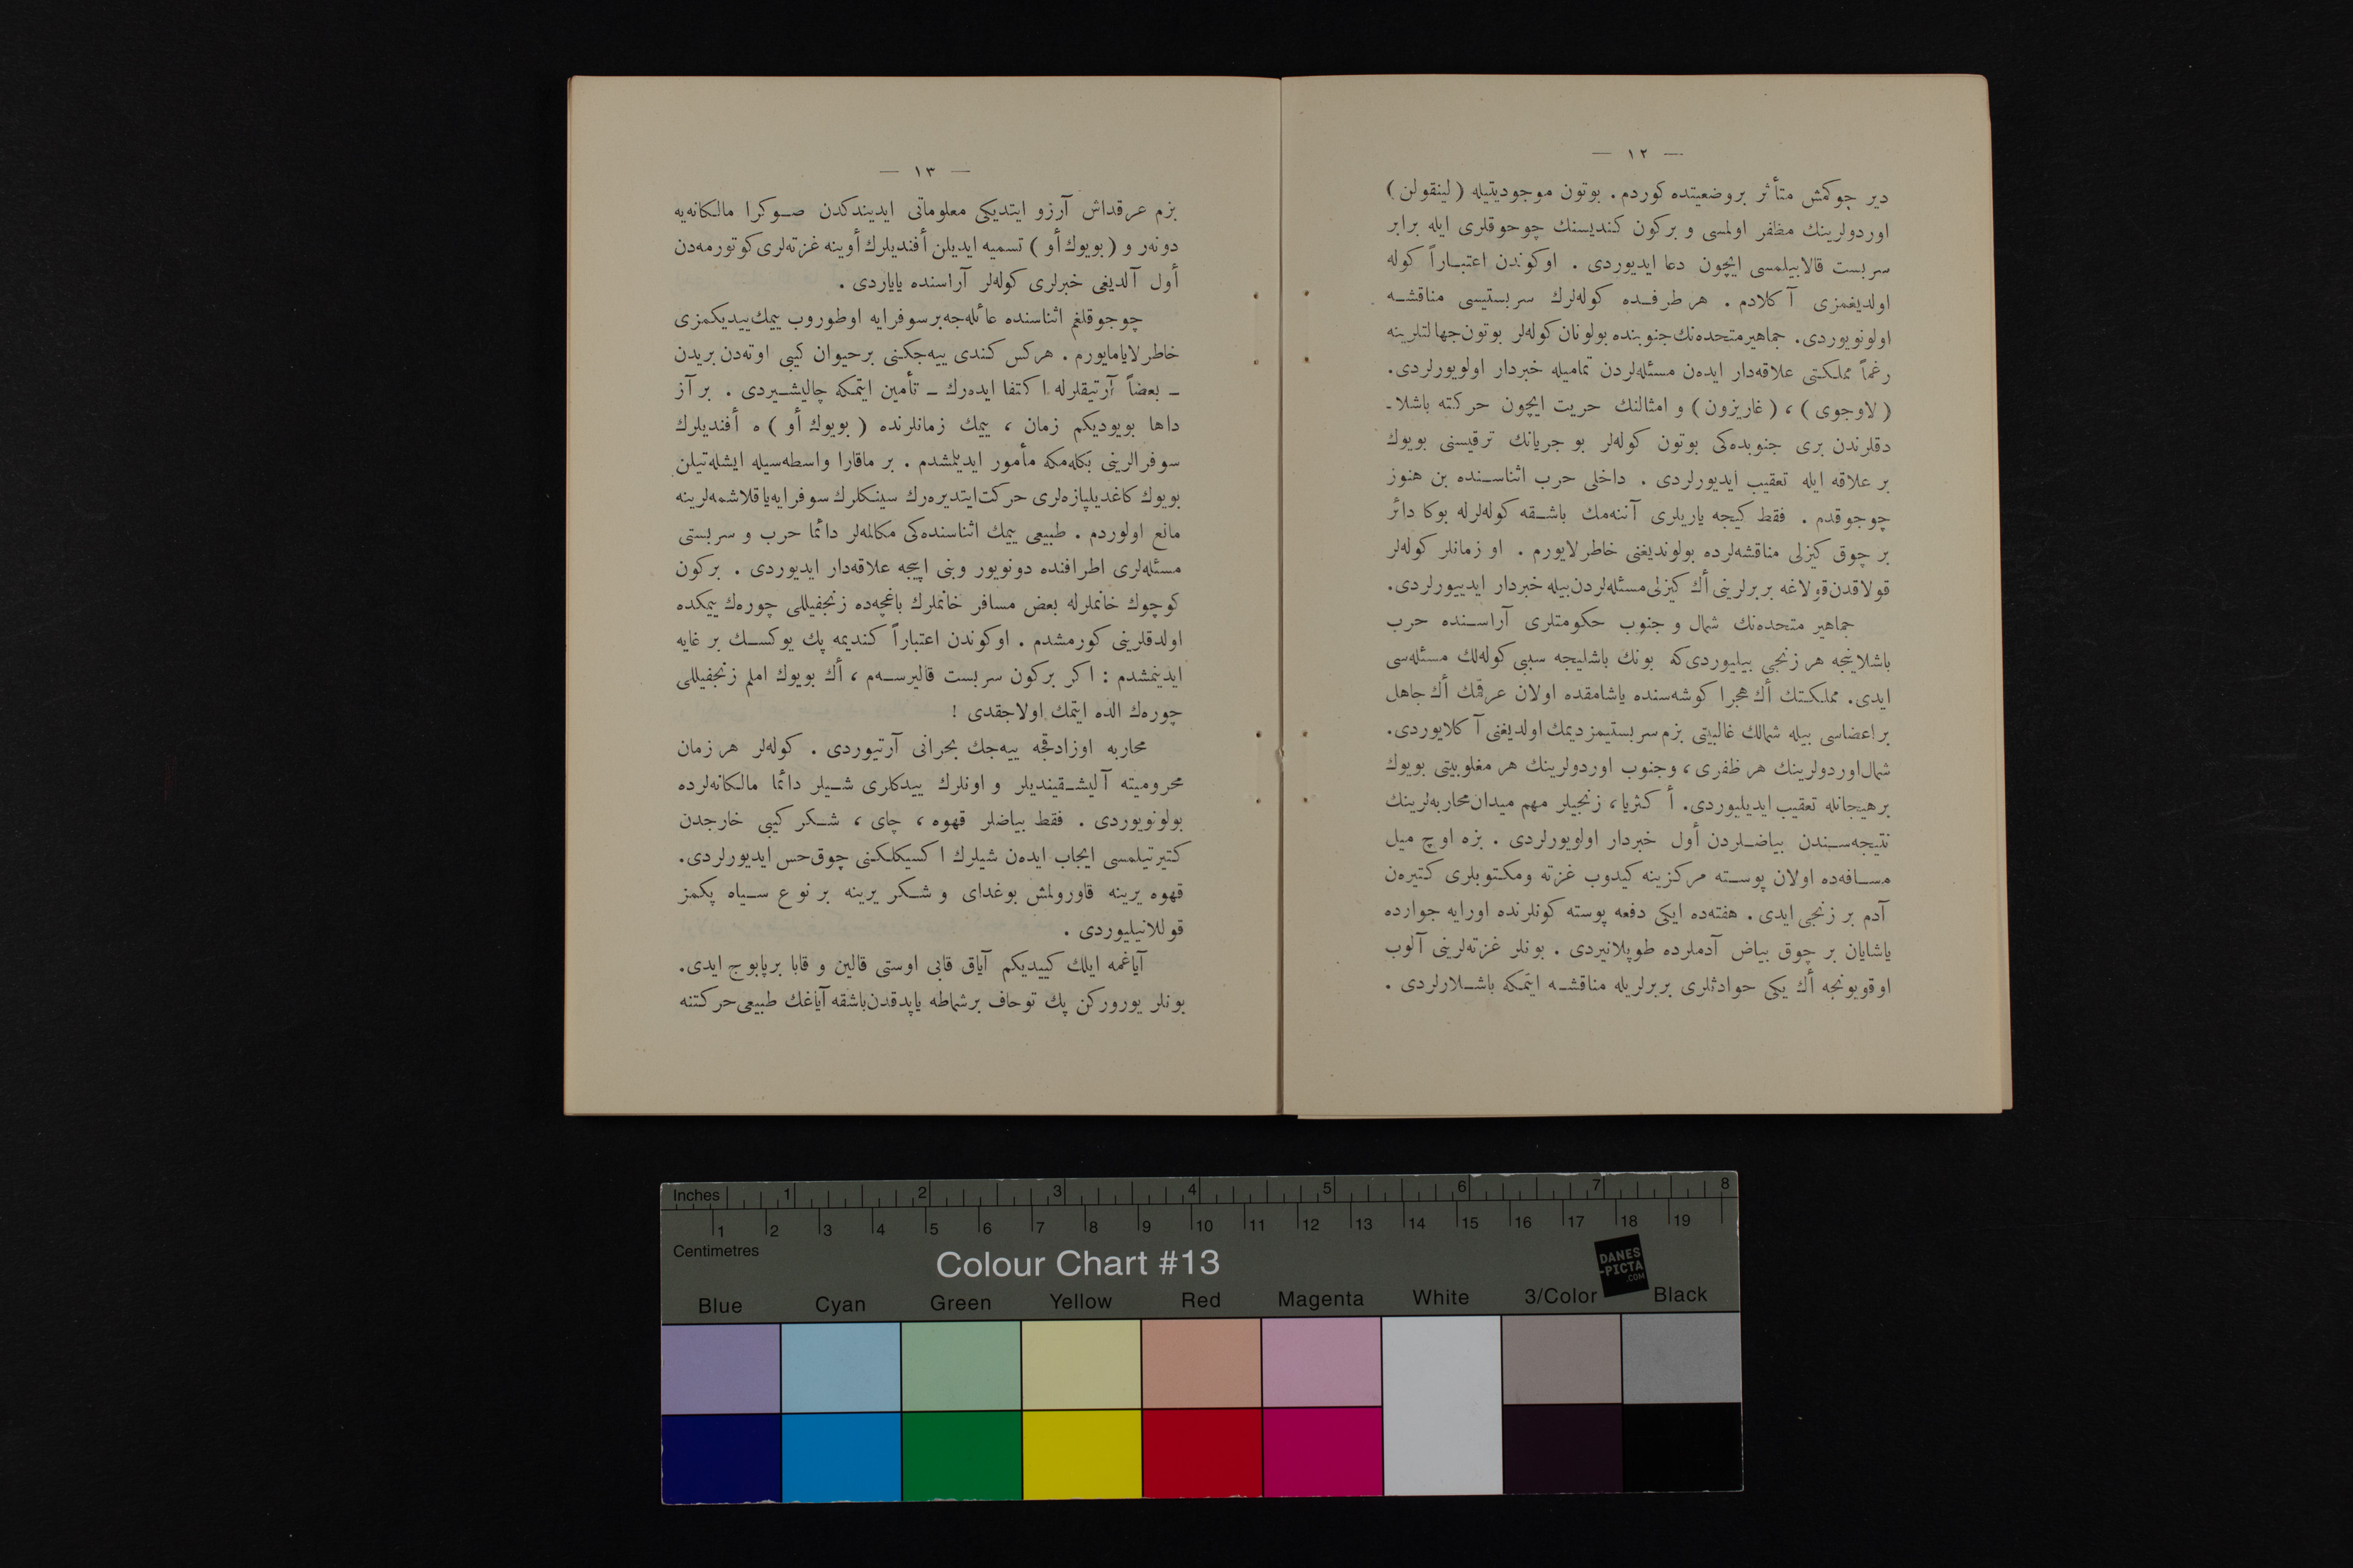 — ١٢ —
دیز چوکمش متأثر بروضعیتده کوردم . بوتون موجودیتیله ( لینقولن )
اوردولرینك مظفر اولمسی و برکون کندیسنك چوجوقلری ایله برابر
سربست قالابیلمسی ایچون دعا ایدیوردی . اوکوندن اعتباراً کوله
اولدیغمزی آکلادم . هر طرفده کوله‌لرك سربستیسی مناقشه
اولونویوردی. جماهیر متحده‌نك جنوبنده بولونان کوله‌لر بوتون جهالتلرینه
رغماً مملکتی علاقه‌دار ایده‌ن مسئله‌لردن تمامیله خبردار اولویورلردی.
( لاوجوی ) ، ( غاریزون ) و امثالنك حریت ایچون حرکته باشلا-
دقلرندن بری جنوبده‌کی بوتون کوله‌لر بو جریانك ترقیسنی بویوك
بر علاقه ایله تعقیب ایدیورلردی . داخلی حرب اثناسنده بن هنوز
چوجوقدم . فقط کیجه یاریلری آننه‌مك باشقه کوله‌لرله بوکا دائر
بر چوق کیزلی مناقشه‌لرده بولوندیغنی خاطرلایورم . او زمانلر کوله‌لر
قولاقدن قولاغه بربرلرینی أك کیزلی مسئله‌لردن بیله خبردار ایدییورلردی.
جماهیر متحده‌نك شمال و جنوب حکومتلری آراسنده حرب
باشلاینجه هر زنجی بیلیوردی که بونك باشلیجه سببی کوله‌لك مسئله‌سی
ایدی. مملکتك أك هجرا کوشه‌سنده یاشامقده اولان عرقمك أك جاهل
بر اعضاسی بیله شمالك غالبیتی بزم سربستیمز دیمك اولدیغنی آکلایوردی.
شمال اوردولرینك هر ظفری، وجنوب اوردولرینك هر مغلوبیتی بویوك
بر هیجانله تعقیب ایدیلیوردی. أکثریا، زنجیلر مهم میدان محاربه‌لرینك
نتیجه‌سندن بیاضلردن أول خبردار اولویورلردی . بزه اوچ میل
مسافه‌ده اولان پوسته مرکزینه کیدوب غزته ومکتوبلری کتیره‌ن
آدم بر زنجی ایدی. هفته‌ده ایکی دفعه پوسته کونلرنده اورایه جوارده
یاشایان بر چوق بیاض آدملرده طوپلانیردی . بونلر غزته‌لرینی آلوب
اوقویونجه أك یکی حوادثلری بربرلریله مناقشه ایتمکه باشلارلردی .
— ١٣ —
بزم عرقداش آرزو ایتدیکی معلوماتی ایدیندکدن صوکرا مالکانه‌یه
دونه‌ر و ( بویوك أو ) تسمیه ایدیلن أفندیلرك أوینه غزته‌لری کوتورمه‌دن
أول آلدیغی خبرلری کوله‌لر آراسنده یایاردی .
چوجوقلغم اثناسنده عائله‌جه بر سوفرایه اوطوروب ییمك ییدیکمزی
خاطرلایامایورم . هرکس کندی ییه‌جکنی بر حیوان کیبی اوته‌دن بریدن
ـ بعضاً آرتیقلرله اکتفا ایده‌رك ـ تأمین ایتمکه چالیشیردی . بر آز
داها بویودیکم زمان ، ییمك زمانلرنده ( بویوك أو ) ه أفندیلرك
سوفرالرینی بکله‌مکه مأمور ایدیلمشدم . بر ماقارا واسطه‌سیله ایشله‌تیلن
بویوك کاغد یلپازه‌لری حرکت ایتدیره‌رك سینکلرك سوفرایه یاقلاشمه‌لرینه
مانع اولوردم . طبیعی ییمك اثناسنده‌کی مکالمه‌لر دائما حرب و سربستی
مسئله‌لری اطرافنده دونویور وبنی اپیجه علاقه‌دار ایدیوردی . برکون
کوچوك خانملرله بعض مسافر خانملرك باغچه‌ده زنجفیللی چوره‌ك ییمکده
اولدقلرینی کورمشدم . اوکوندن اعتباراً کندیمه پك یوکسك بر غایه
ایدینمشدم : اکر برکون سربست قالیرسه‌م ، أك بویوك املم زنجفیللی
چوره‌ك الده ایتمك اولاجقدی !
محاربه اوزادقجه ییه‌جك بحرانی آرتیوردی . کوله‌لر هر زمان
محرومیته آلیشقیندیلر و اونلرك ییدکلری شیلر دائما مالکانه‌لرده
بولونویوردی . فقط بیاضلر قهوه ، چای ، شکر کیبی خارجدن
کتیرتیلمسی ایجاب ایده‌ن شیلرك اکسیکلکنی چوق حس ایدیورلردی.
قهوه یرینه قاورولمش بوغدای و شکر یرینه بر نوع سیاه پکمز
قوللانیلیوردی .
آیاغمه ایلك کییدیکم آیاق قابی اوستی قالین و قابا بر پابوج ایدی.
بونلر یورورکن پك توحاف بر شماطه یاپدقدن باشقه آیاغك طبیعی حرکتنه
Inches 1 2 3 4 5 6 7 8
1 2 3 4 5 6 7 8 9 10 11 12 13 14 15 16 17 18 19
Centimetres
Colour Chart #13
DANES
-PICTA
.COM
Blue Cyan Green Yellow Red Magenta White 3/Color Black